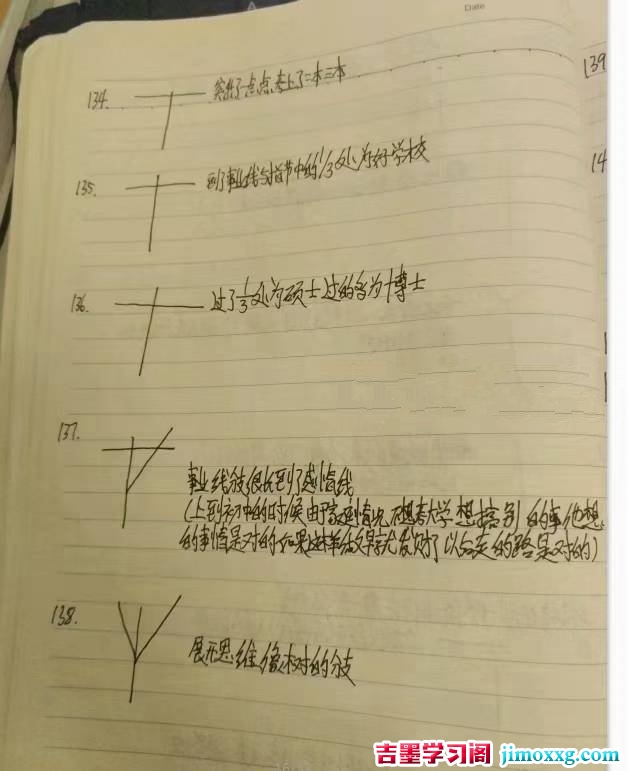 Date
139
134. 突出了一点点考上了二本三本
135. 到了事业线与指节中的1/3处为好学校
14
136. 过了1/3处为硕士过的多为博士
137.
事业线分支很长到了感情线
(上到初中的时候由于家庭情况不想考大学想搞别的事他想
的事情是对的如果这样结交早就发财了以后走的路是对的)
138.
展开思维像树的分支
吉墨学习阁 jimoxxg.com